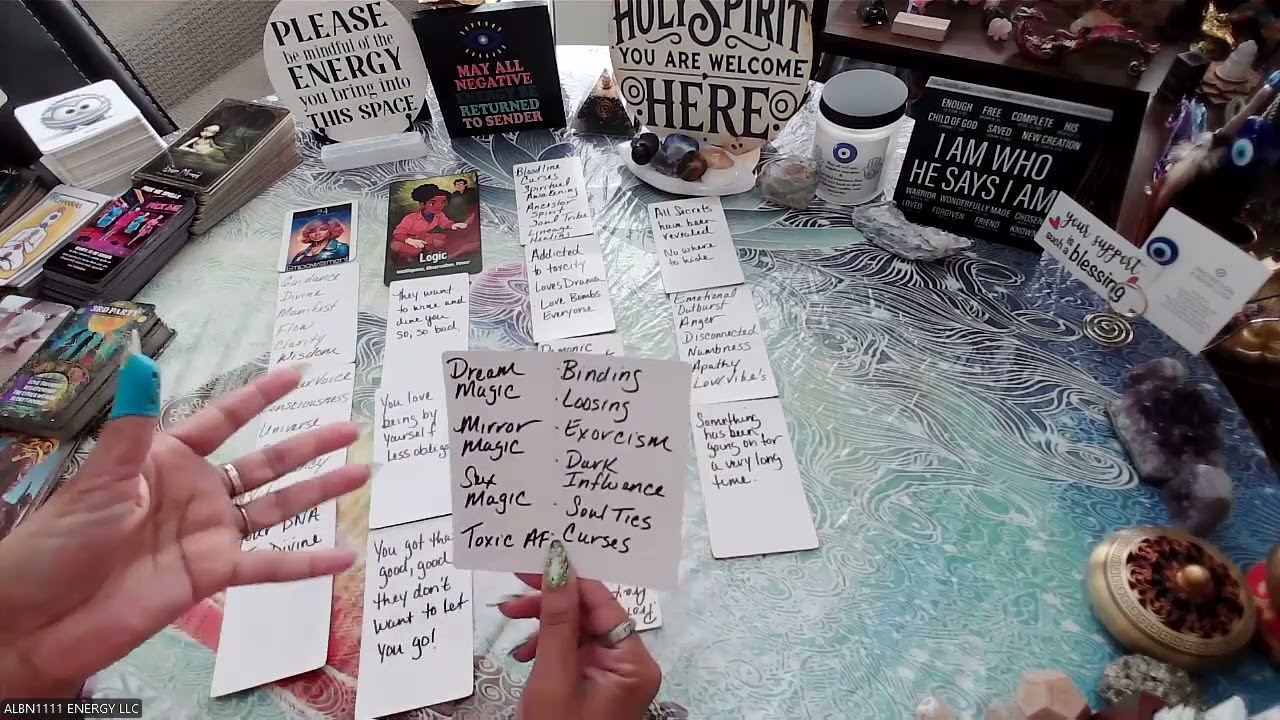 PLEASE
be mindful of the
ENERGY
you bring into
THIS SPACE
MAY ALL
NEGATIVE
RETURNED
TO SENDER
HOLY SPIRIT
YOU ARE WELCOME
HERE
ENOUGH FREE COMPLETE HIS
CHILD OF GOD SAVED NEW CREATION
I AM WHO
HE SAYS I AM
WARRIOR WONDERFULLY MADE CHOSEN
LOVED FORGIVEN FRIEND KNOWN
your support
is
such a blessing
3RD PARTY
24
EMPOWERMENT
Guidance
Divine
Manifest
Flow
Clarity
Wisdom
Voice
Universe
DNA
Divine
Logic
they want
to wine and
dine you
so, so bad.
You love
being by
yourself
less
You got the
good, good
they don't
want to let
you go!
Bloodline
Curses
Spiritual
Awakening
Ancestor
Spirit
Soul Tribe
Addicted
to toxicity
Loves Drama
Love Bombs
Everyone
Dream
Magic
Mirror
Magic
Sex
Magic
Toxic AF
· Binding
· Loosing
· Exorcism
· Dark
Influence
· Soul Ties
· Curses
All Secrets
have been
revealed
No where
to hide.
Emotional
Outburst
Anger
Disconnected
Numbness
Apathy
Love Vibe's
Something
has been
going on for
a very long
time.
ALBN1111 ENERGY LLC